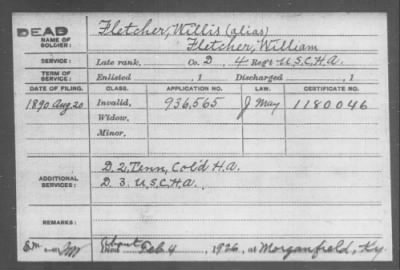 DEAD
Fletcher, Willis (alias)
NAME OF SOLDIER:
Fletcher, William
SERVICE: Late rank, Co. D, 4 Reg't U.S.C.H.A.
TERM OF SERVICE: Enlisted , 1 Discharged , 1
DATE OF FILING. CLASS. APPLICATION NO. LAW. CERTIFICATE NO.
1890 Aug. 20 Invalid, 936,565 J May 1180046
Widow,
Minor,
ADDITIONAL SERVICES:
D. 2, Tenn, Col'd H.A.
D. 3. U.S.C.H.A.
REMARKS:
About
Died Feb 4, 1926, at Morganfield, Ky.